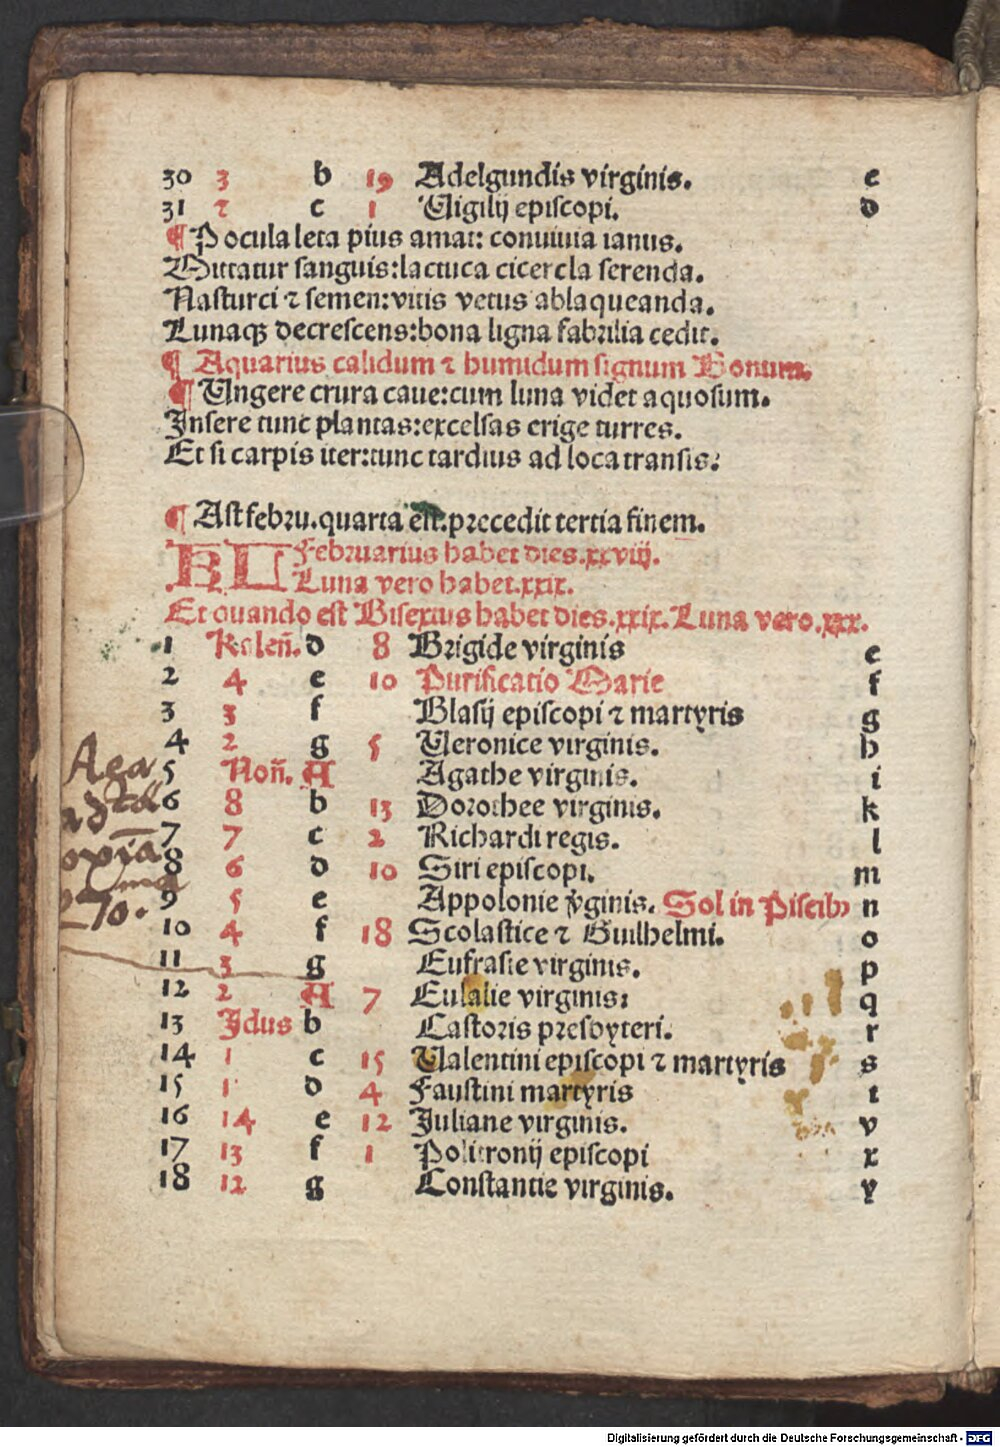 30 3 b 19 Adelgundis virginis. c
31 2 c 1 Vigilij episcopi. d
¶ Pocula leta pius amat: conuiuia ianus.
Mittatur sanguis:lactuca cicercla serenda.
Nasturci ⁊ semen:vitis vetus ablaqueanda.
Lunaqꝫ decrescens:bona ligna fabrilia cedit.
¶ Aquarius calidum ⁊ humidum signum Bonum.
¶ Ungere crura caue:cum luna videt aquosum.
Insere tunc plantas:excelsas erige turres.
Et si carpis iter:tunc tardius ad loca transis:
¶ Ast febru.quarta est.precedit tertia finem.
KL Februarius habet dies.xxviij.
Luna vero habet.xxix.
Et quando est Bisextus habet dies.xxix. Luna vero.xxx.
1 Kaleñ. d 8 Brigide virginis e
2 4 e 10 Purificatio Marie f
3 3 f Blasij episcopi ⁊ martyris g
4 2 g 5 Veronice virginis. h
5 Noñ. A Agathe virginis. i
6 8 b 13 Dorothee virginis. k
7 7 c 2 Richardi regis. l
8 6 d 10 Siri episcopi. m
9 5 e Appolonie v̄ginis. Sol in Piscibꝰ n
10 4 f 18 Scolastice ⁊ Guilhelmi. o
11 3 g Eufrasie virginis. p
12 2 A 7 Eulalie virginis: q
13 Jdus b Castoris presbyteri. r
14 1 c 15 Valentini episcopi ⁊ martyris s
15 1 d 4 Faustini martyris t
16 14 e 12 Juliane virginis. v
17 13 f 1 Politronij episcopi x
18 12 g Constantie virginis. y
70.
Digitalisierung gefördert durch die Deutsche Forschungsgemeinschaft - DFG